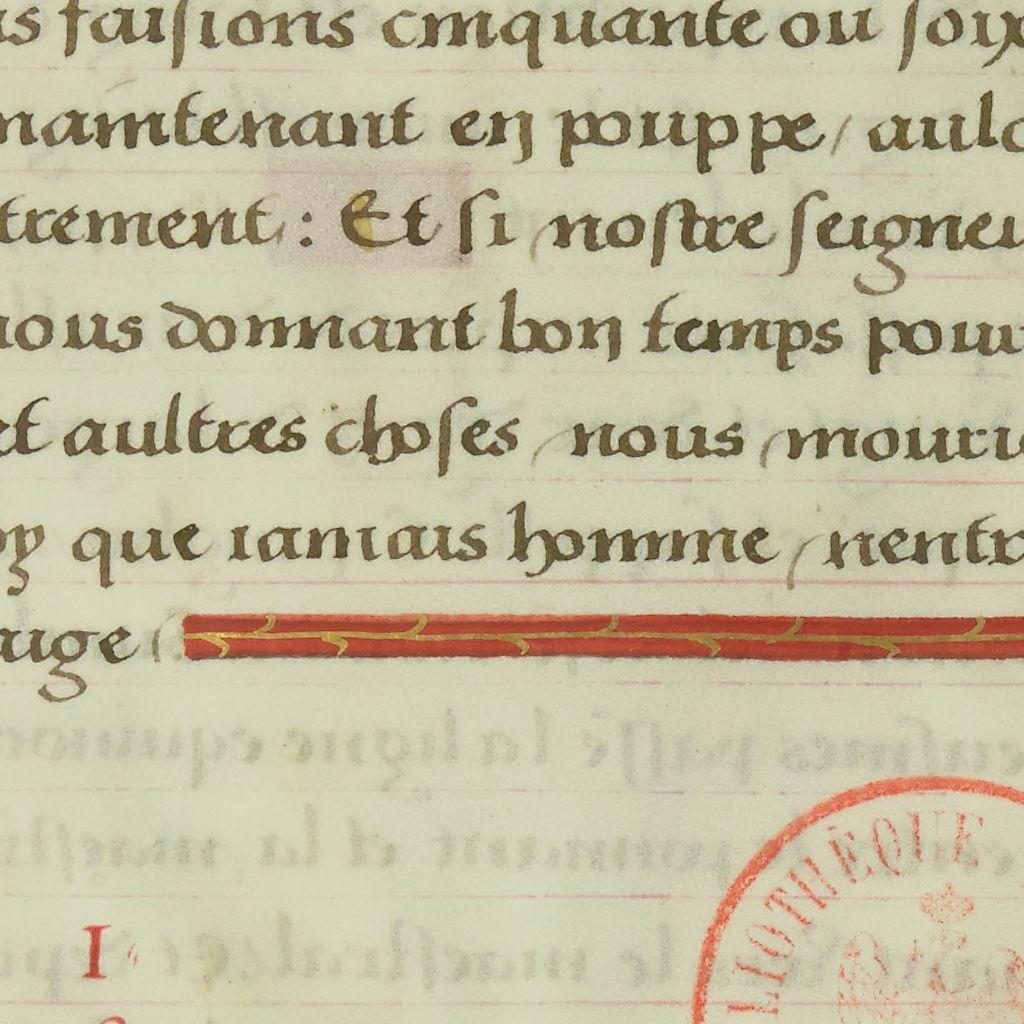 faisions cinquante ou
maintenant en pouppe / aulc
trement : Et si nostre seigneu
nous donnant bon temps pour
et aultres choses nous mouri
que iamais homme nentr
uige
I
LIOTHÈQUE